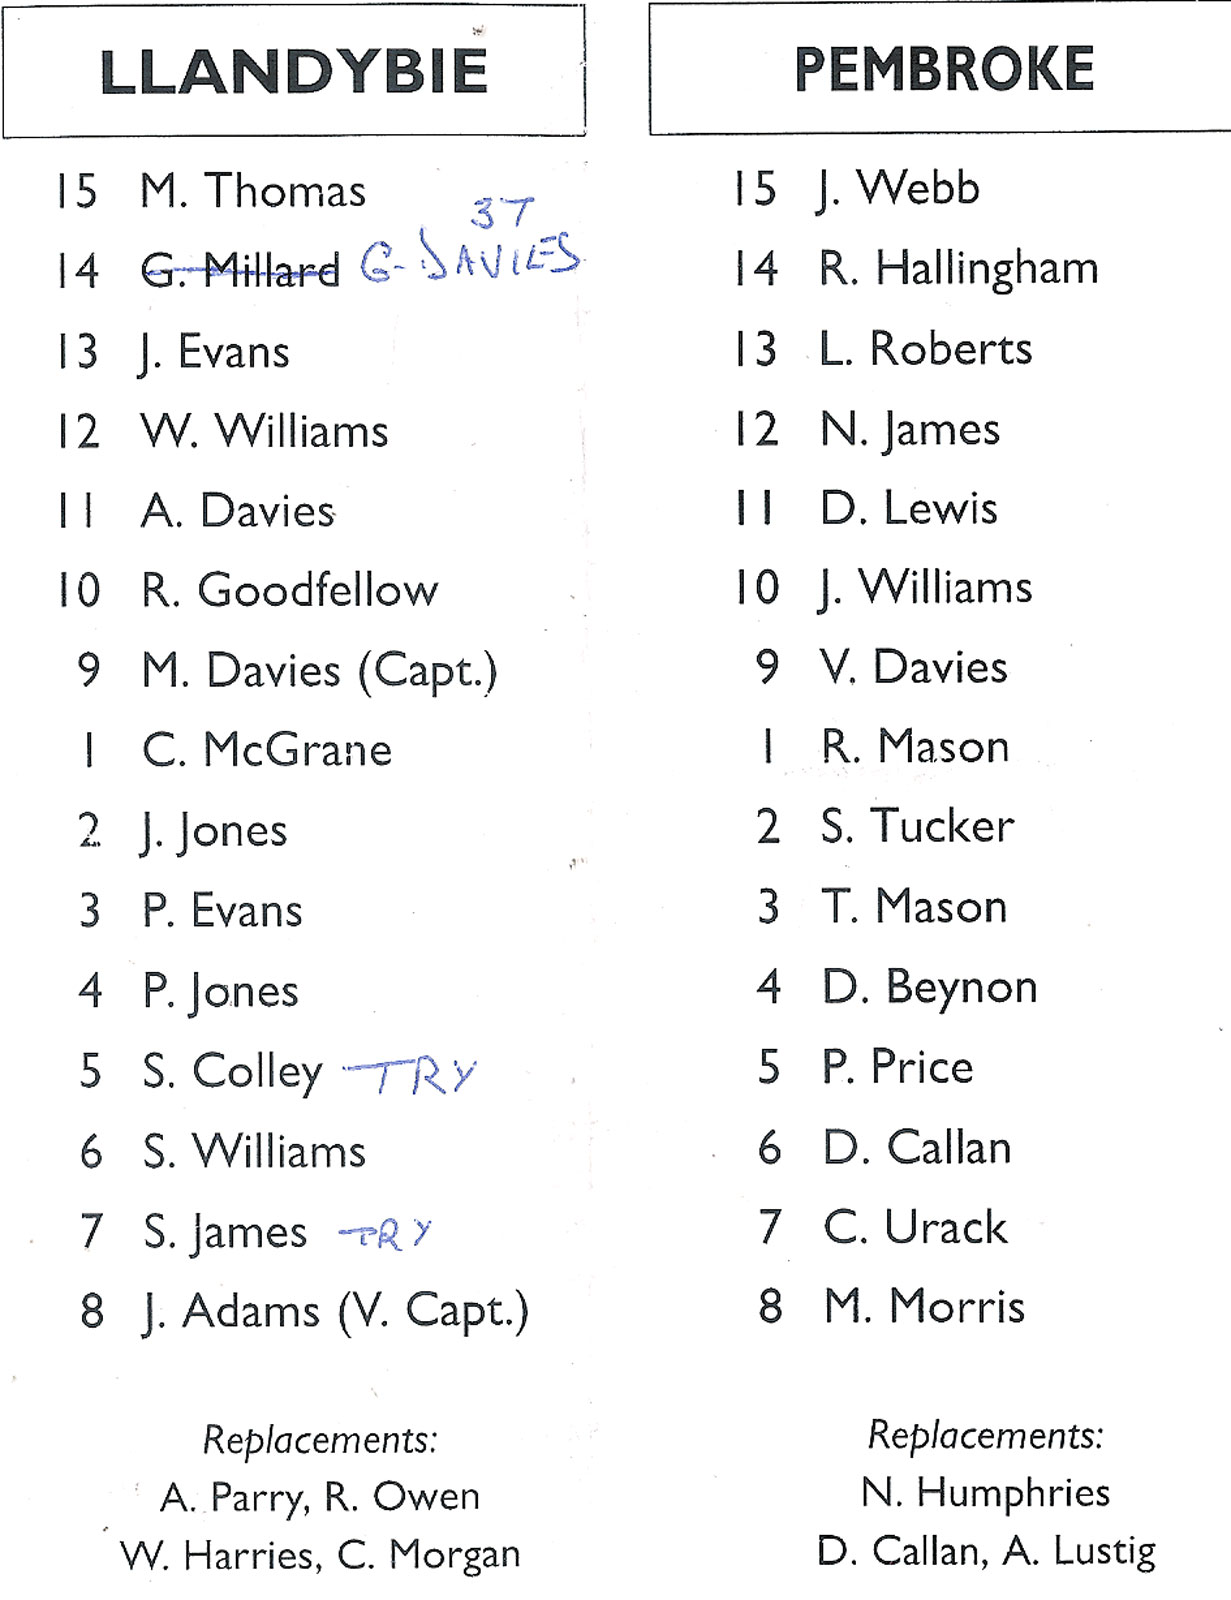 LLANDYBIE
15 M. Thomas
3T
14 G. Millard G. DAVIES
13 J. Evans
12 W. Williams
11 A. Davies
10 R. Goodfellow
9 M. Davies (Capt.)
1 C. McGrane
2 J. Jones
3 P. Evans
4 P. Jones
5 S. Colley TRY
6 S. Williams
7 S. James TRY
8 J. Adams (V. Capt.)
Replacements:
A. Parry, R. Owen
W. Harries, C. Morgan
PEMBROKE
15 J. Webb
14 R. Hallingham
13 L. Roberts
12 N. James
11 D. Lewis
10 J. Williams
9 V. Davies
1 R. Mason
2 S. Tucker
3 T. Mason
4 D. Beynon
5 P. Price
6 D. Callan
7 C. Urack
8 M. Morris
Replacements:
N. Humphries
D. Callan, A. Lustig